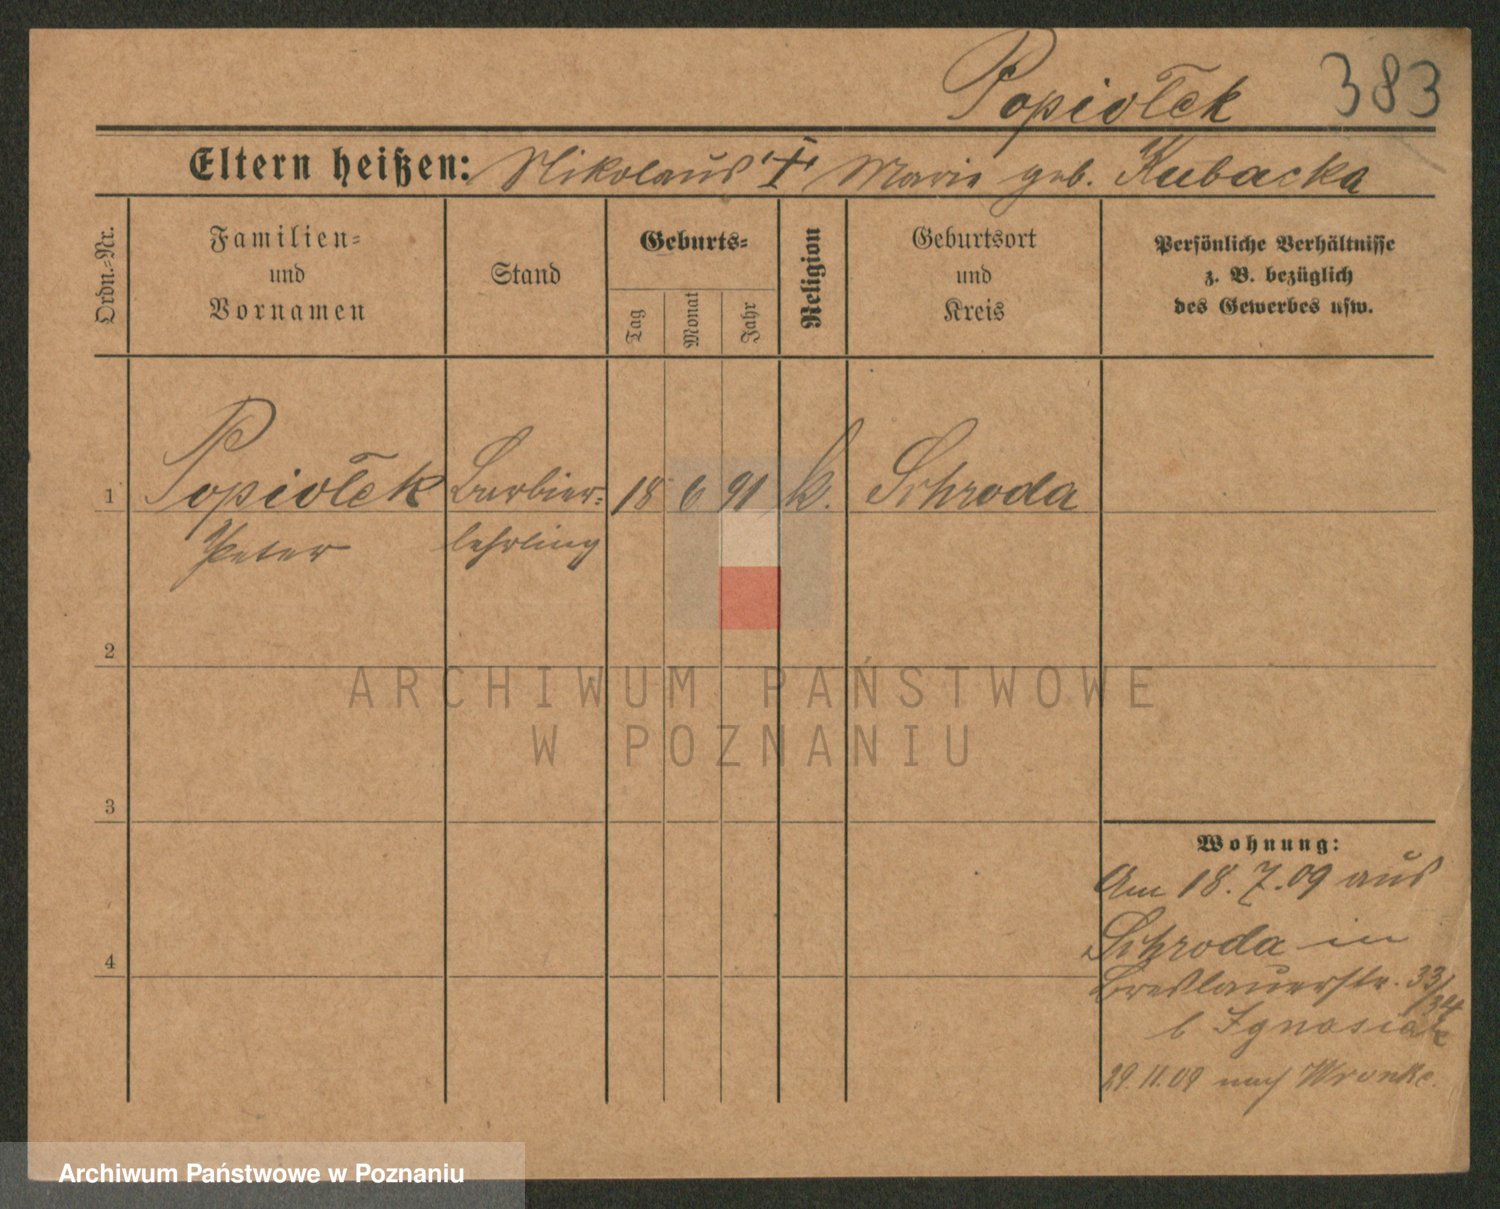 Popiołek 383
Eltern heißen: Nikolaus † Marie geb. Kubacka
Ordn.-Nr.
Familien-
und
Vornamen
Stand
Geburts-
Tag
Monat
Jahr
Religion
Geburtsort
und
Kreis
Persönliche Verhältnisse
z. B. bezüglich
des Gewerbes usw.
1 Popiołek Barbier- 18 6 91 k. Schroda
Peter lehrling
2
ARCHIWUM PAŃSTWOWE
W POZNANIU
3
Wohnung:
Am 18.7.09 aus
Schroda in
4
Breslauerstr. 33/34
b Ignasiak
29.11.09 nach Wronke.
Archiwum Państwowe w Poznaniu